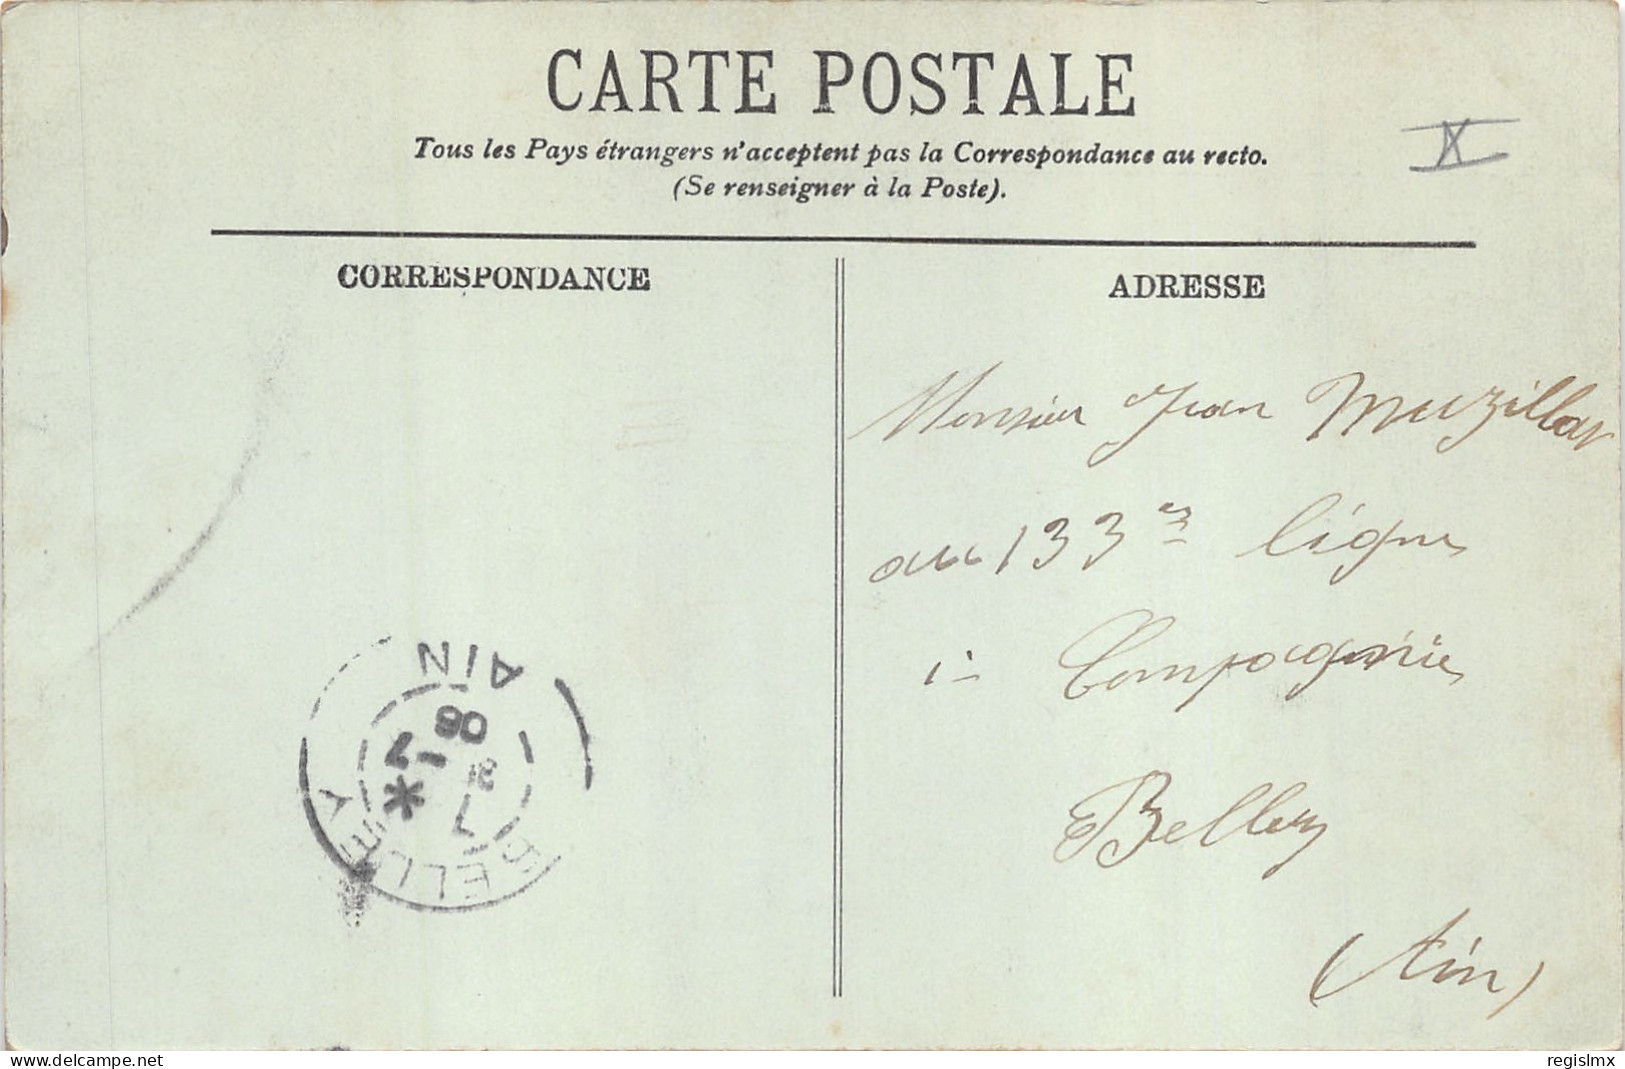 CARTE POSTALE
Tous les Pays étrangers n'acceptent pas la Correspondance au recto.
(Se renseigner à la Poste).
X
CORRESPONDANCE
ADRESSE
Monsieur Jean Muzillar
au 133e ligne
1e Compagnie
Belley
(Ain)
BELLEY
7
8
*
-7
06
AIN
delcampe.net
regislmx